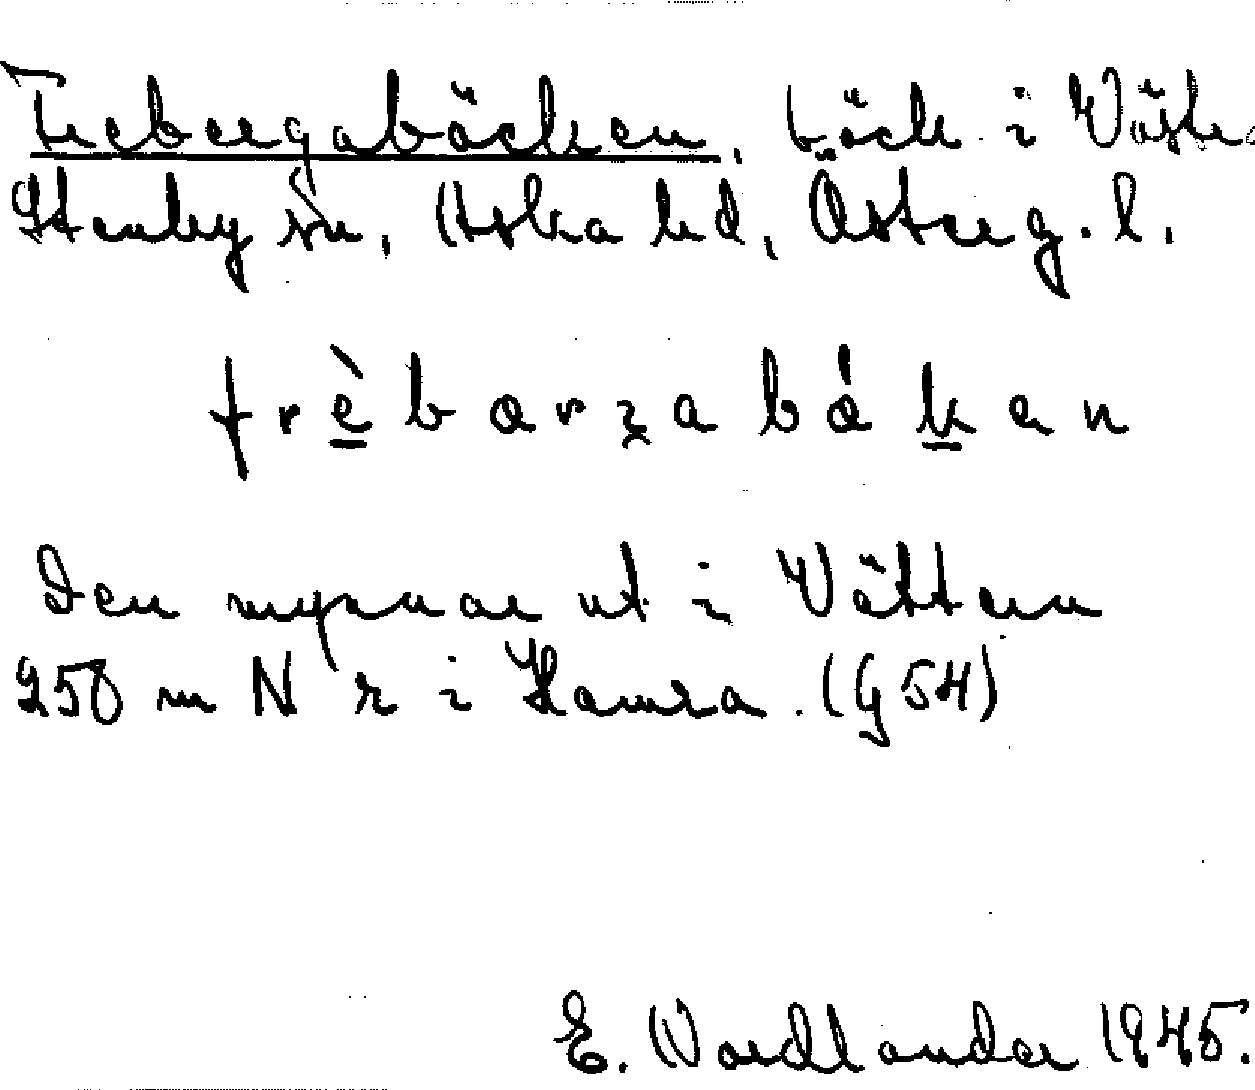 Frebergabäcken, bäck i Västra
Stenby sn, Aska hd, Österg. l.
frèbarʒabákan
Den mynnar ut i Vättern
250 m N r i Hamra. (G54)
E. Nordlander 1945.